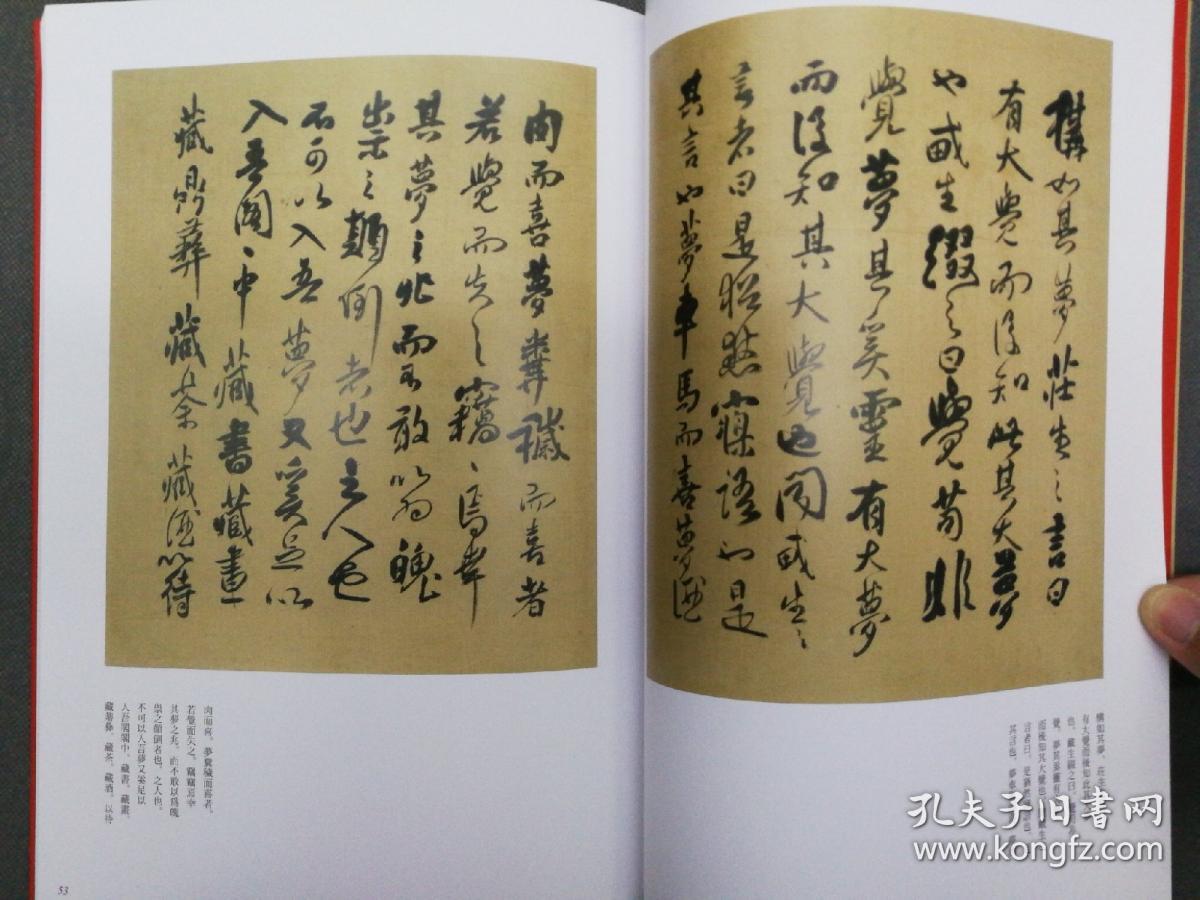 構如其夢莊生之言曰
有大覺而後知此其大夢
也臧生綴之曰覺芴非
覺夢其奚靈有大夢
而後知其大覺也聞臧生之
言者曰是猶然寐語也是
其言也夢車馬而喜夢酒
構如其夢。莊生
有大覺而後知此其
也。臧生綴之曰。
覺。夢其奚靈有
而後知其大覺也
言者曰。是猶然
其言也。夢車
肉而喜夢糞穢而喜者
若覺而失之竊々焉幸
其夢之兆而不敢以為魄
祟之顛倒者也之人也
不可以入吾夢又奚足以
入吾閣々中藏書藏畫
藏鼎彝藏茶藏酒以待
肉而喜。夢糞穢而喜者。
若覺而失之。竊竊焉幸
其夢之兆。而不敢以爲魄
祟之顛倒者也。之人也。
不可以入吾夢又奚足以
入吾閣閣中。藏書。藏畫。
藏鼎彝。藏茶。藏酒。以待
53
孔夫子旧书网
www.kongfz.com